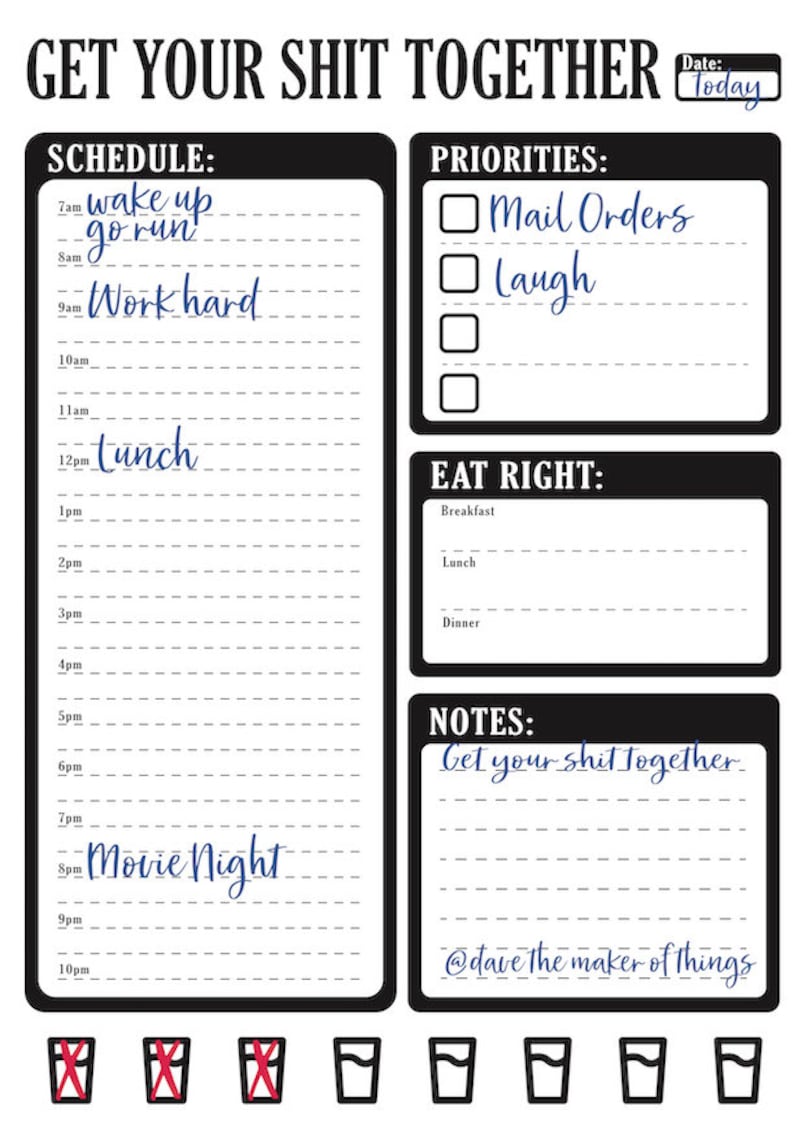 GET YOUR SHIT TOGETHER
Date:
Today
SCHEDULE:
7am wake up
go run
8am
9am Work hard
10am
11am
12pm Lunch
1pm
2pm
3pm
4pm
5pm
6pm
7pm
8pm Movie Night
9pm
10pm
PRIORITIES:
Mail Orders
Laugh
EAT RIGHT:
Breakfast
Lunch
Dinner
NOTES:
Get your shit together
@dave the maker of things